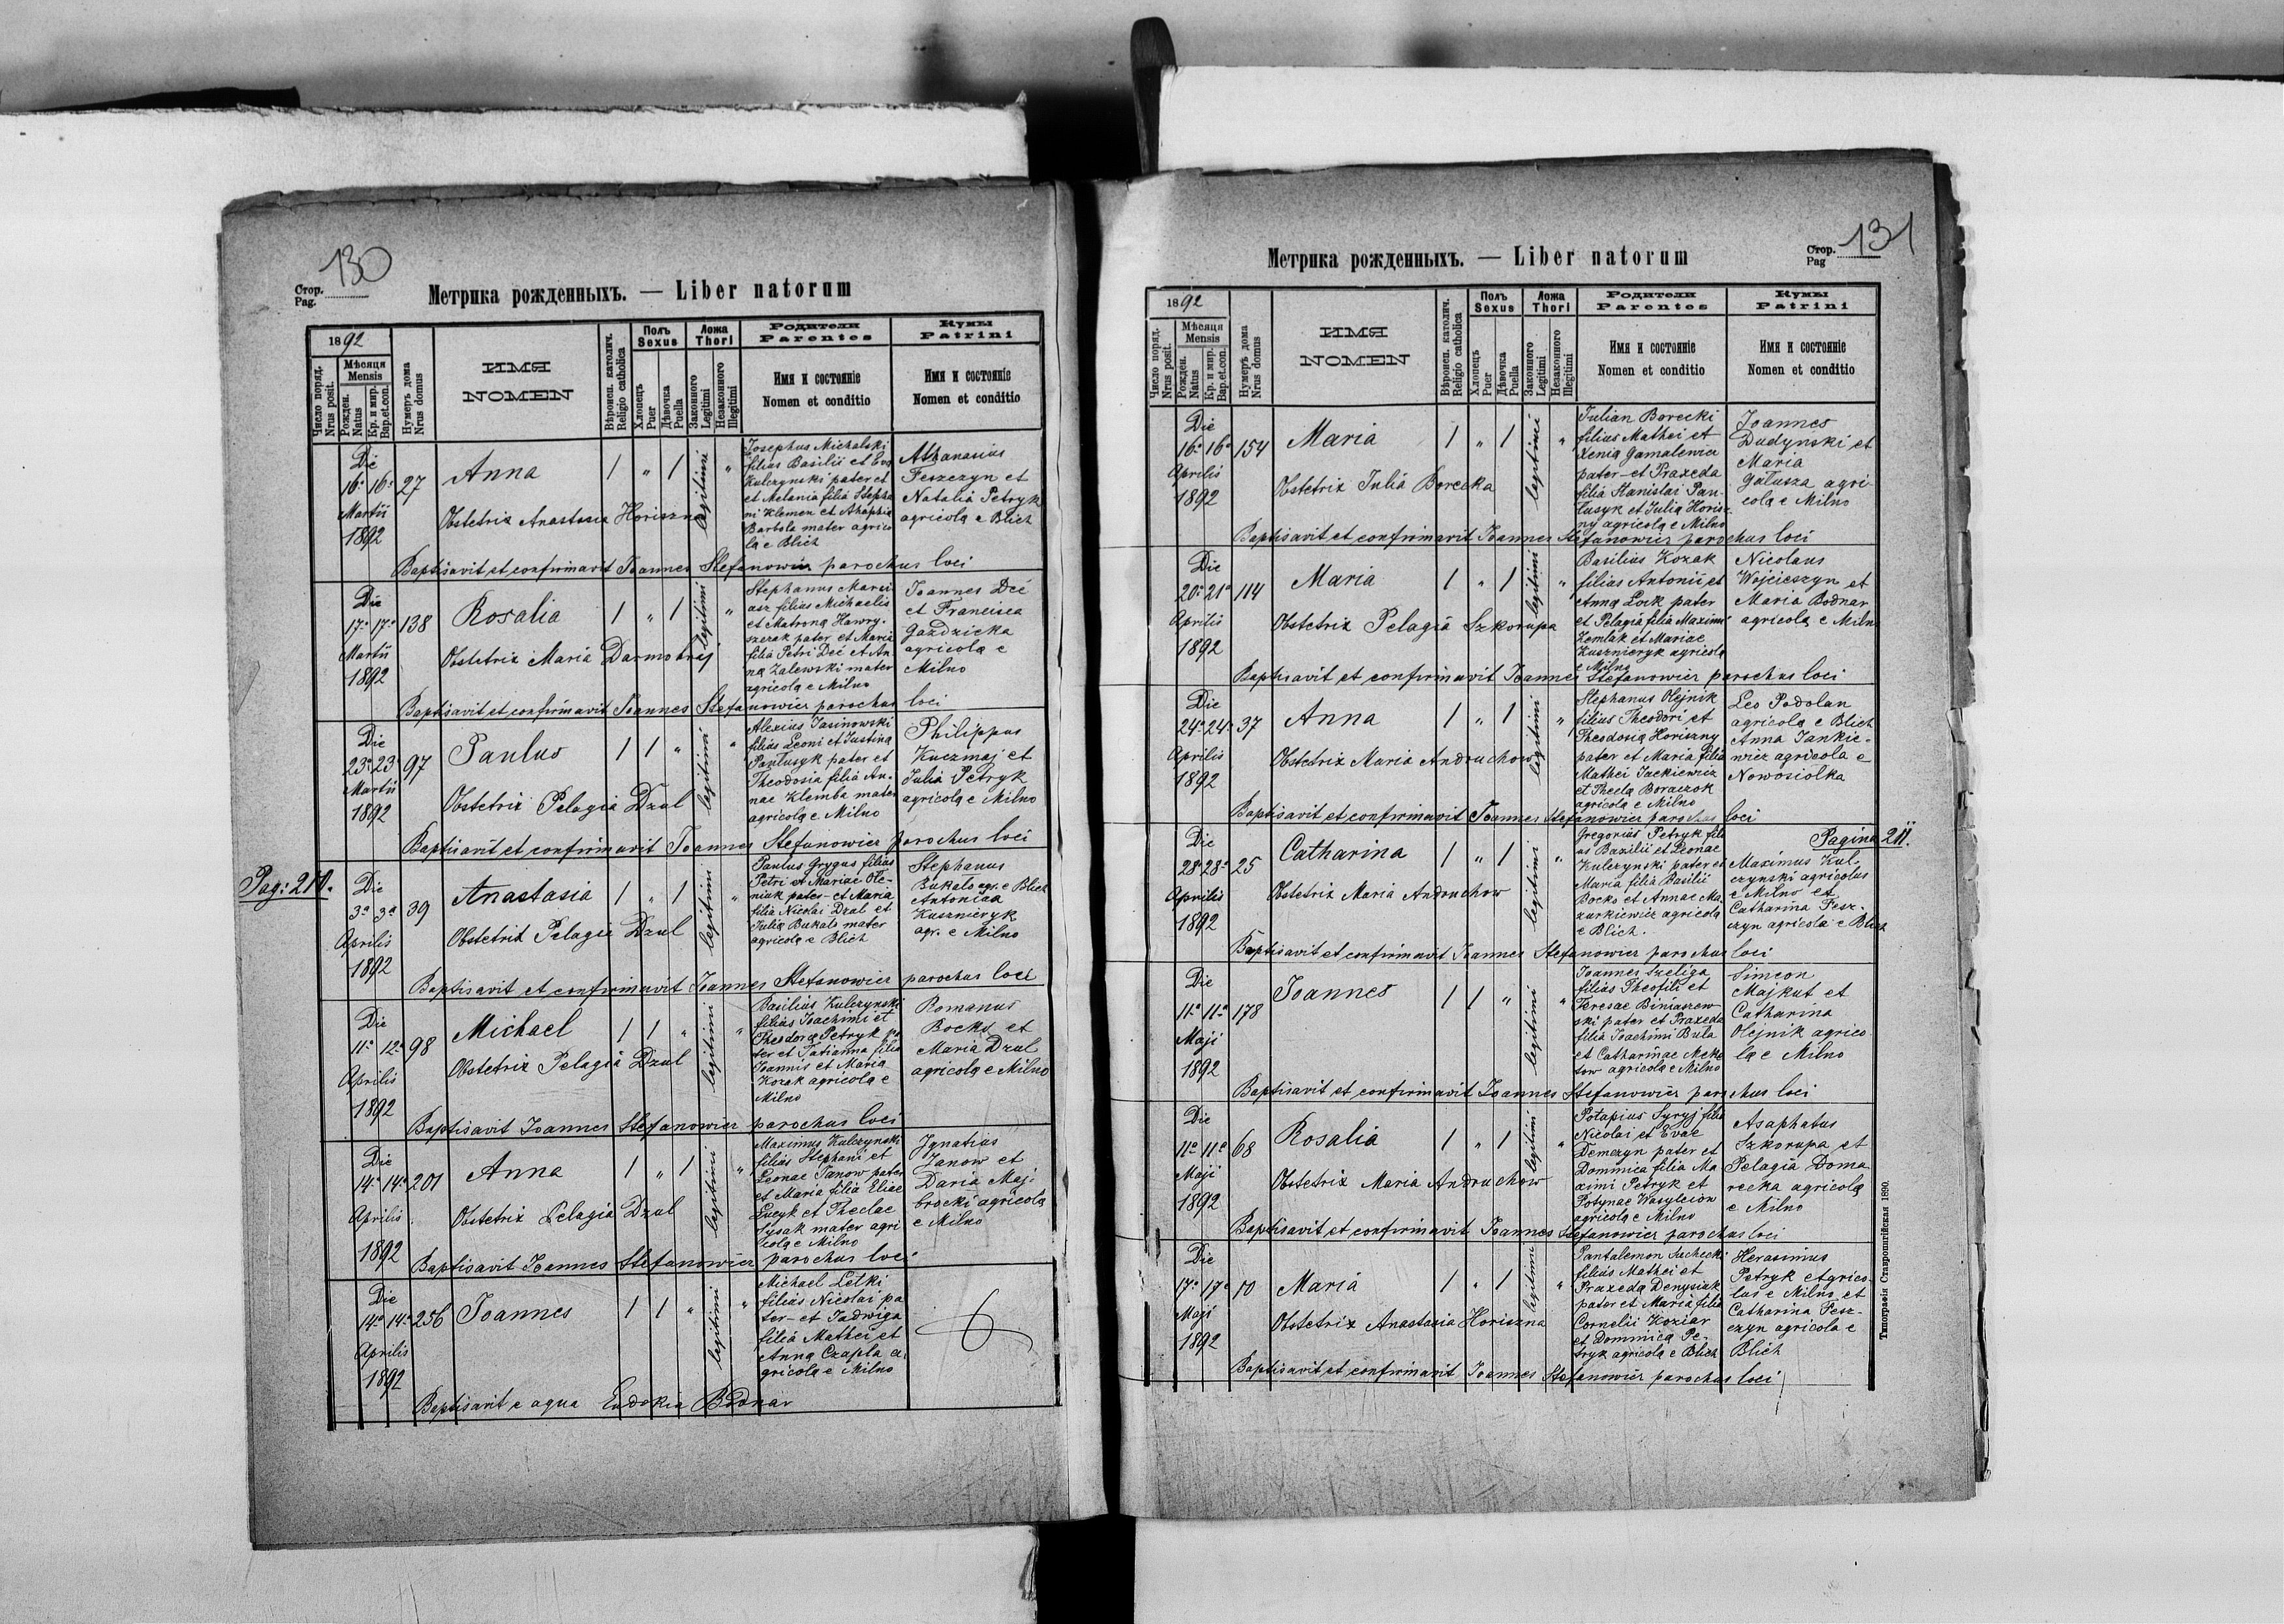 130
Стор.
Pag.
Метрика рожденныхъ. — Liber natorum
1892
Число поряд.
Nrus posit.
Мѣсяця
Mensis
Рожден.
Natus
Кр. и мир.
Bap.et.con.
Нумеръ дома
Nrus domus
ИМЯ
NOMEN
Вѣроисп. католич.
Religio catholica
Полъ
Sexus
Хлопецъ
Puer
Дѣвочка
Puella
Ложа
Thori
Законного
Legitimi
Незаконного
Illegitimi
Родители
Parentes
Имя и состояніе
Nomen et conditio
Кумы
Patrini
Имя и состояніе
Nomen et conditio
Die
16a 16a
Martii
1892
27
Anna
1 „ 1 legitimi „
Obstetrix Anastasia Horiszna
Josephus Michalski
filius Basilii et Eva
Kulczynski pater et
et Melania filia Stepha
ni Klemen et Ahaphia
Bartola mater agrico
la e Blich
Athanasius
Feszczyn et
Natalia Petryk
agricola e Blich
Baptisavit et confirmavit Joannes Stefanowicz parochus loci
Die
17a 17a
Martii
1892
138
Rosalia
1 „ 1 legitimi „
Obstetrix Maria Darmohraj
Stephanus Marci
asz filius Michaelis
et Matrona Hawry-
szczak pater et Maria
filia Petri Deć et An
na Zalewski mater
agricola e Milno
Joannes Deć
et Francisca
Gazdzicka
agricola e
Milno
Baptisavit et confirmavit Joannes Stefanowicz parochus loci
Die
23a 23
Martii
1892
97
Paulus
1 1 „ legitimi „
Obstetrix Pelagia Dzul
Alexius Jasinowski
filius Leoni et Justina
Pawlusyk pater et
Theodosia filia An-
nae Klemba mater
agricola e Milno
Philippus
Kuczmaj et
Julia Petryk
agricola e Milno
Baptisavit et confirmavit Joannes Stefanowicz parochus loci
Pag: 210.
Die
3a 3a
Aprilis
1892
39
Anastasia
1 „ 1 legitimi „
Obstetrix Pelagia Dzul
Paulus Grygus filius
Petri et Mariae Ole-
niuk pater et Maria
filia Nicolai Dzul et
Julia Bukało mater
agricola e Blich
Stephanus
Bukało agr. e Blich
Antonina
Kusznieryk
agr. e Milno
Baptisavit et confirmavit Joannes Stefanowicz parochus loci
Die
11a 12a
Aprilis
1892
98
Michael
1 1 „ legitimi „
Obstetrix Pelagia Dzul
Basilius Kulczynski
filius Joachimi et
Theodora Petryk pa
ter et Tatianna filia
Joannis et Maria
Kozak agricola e
Milno
Romanus
Bocko et
Maria Dzul
agricola e Milno
Baptisavit Joannes Stefanowicz parochus loci
Die
14a 14a
Aprilis
1892
201
Anna
1 „ 1 legitimi „
Obstetrix Pelagia Dzul
Maximus Kulczynski
filius Stephani et
Leonae Janow pater
et Maria filia Eliae
Lucyk et Theclae
Sysak mater agri
cola e Milno
Ignatius
Janow et
Daria Maj
brocki agricola
e Milno
Baptisavit Joannes Stefanowicz parochus loci
Die
14a 14a
Aprilis
1892
256
Joannes
1 1 „ legitimi „
Michael Letki
filius Nicolai pa
ter et Jadwiga
filia Mathei et
Anna Czapla a
gricola e Milno
Baptisavit e aqua Eudokia Bodnar
131
Стор.
Pag
Метрика рожденныхъ. — Liber natorum
1892
Число поряд.
Nrus posit.
Мѣсяця
Mensis
Рожден.
Natus
Кр. и мир.
Bap.et.con.
Нумеръ дома
Nrus domus
ИМЯ
NOMEN
Вѣроисп. католич.
Religio catholica
Полъ
Sexus
Хлопецъ
Puer
Дѣвочка
Puella
Ложа
Thori
Законного
Legitimi
Незаконного
Illegitimi
Родители
Parentes
Имя и состояніе
Nomen et conditio
Кумы
Patrini
Имя и состояніе
Nomen et conditio
Die
16a 16a
Aprilis
1892
154
Maria
1 „ 1 legitimi „
Obstetrix Julia Borecka
Julian Borecki
filius Mathei et
Xenia Gamalewicz
pater et Praxeda
filia Stanislai Paw-
lusyk et Julia Horisz-
ny agricola e Milno
Joannes
Dudynski et
Maria
Galusza agri-
cola e Milno
Baptisavit et confirmavit Joannes Stefanowicz parochus loci
Die
20a 21a
Aprilis
1892
114
Maria
1 „ 1 legitimi „
Obstetrix Pelagia Szkorupa
Basilius Kozak
filius Antonii et
Anna Łock pater
et Pelagia filia Maximi
Kemlak et Mariae
Kusznieryk agricola
e Milno
Nicolaus
Wojcieszyn et
Maria Bodnar
agricola e Miln
Baptisavit et confirmavit Joannes Stefanowicz parochus loci
Die
24a 24a
Aprilis
1892
37
Anna
1 „ 1 legitimi „
Obstetrix Maria Andruchow
Stephanus Olejnik
filius Theodori et
Theodosia Horiszny
pater et Maria filia
Mathei Jackiewicz
et Thecla Boraczok
agricola e Milno
Leo Podolan
agricola e Blich
Anna Jankie-
wicz agricola e
Nowosiolka
Baptisavit et confirmavit Joannes Stefanowicz parochus loci
Pagina 211.
Die
28a 28a
Aprilis
1892
25
Catharina
1 „ 1 legitimi „
Obstetrix Maria Andruchow
Gregorius Petryk fili
us Bazilii et Leonae
Kulczynski pater et
Maria filia Basilii
Bocko et Annae Ma
zurkiewicz agricola
e Blich.
Maximus Kul-
czynski agricolus
e Milno et
Catharina Fesz-
czyn agricola e Blich
Baptisavit et confirmavit Joannes Stefanowicz parochus loci
Die
11a 11a
Maji
1892
178
Joannes
1 1 „ legitimi „
Joannes Szeliga
filius Theofili et
Teresae Biniaszew
ski pater et Praxeda
filia Joachimi Buła
et Catharinae Meke
tow agricola e Milno
Simeon
Majkut et
Catharina
Olejnik agrico
la e Milno
Baptisavit et confirmavit Joannes Stefanowicz parochus loci
Die
11a 11a
Maji
1892
68
Rosalia
1 „ 1 legitimi „
Obstetrix Maria Andruchow
Potapius Syryj filius
Nicolai et Evae
Demczyn pater et
Dominica filia Ma
ximi Petryk et
Potynae Wasylciow
agricola e Milno
Asaphatus
Szkorupa et
Pelagia Doma
recka agricola
e Milno
Baptisavit et confirmavit Joannes Stefanowicz parochus loci
Die
17a 17a
Maji
1892
10
Maria
1 „ 1 legitimi „
Obstetrix Anastasia Horiszna
Pantalemon Suchecki
filius Mathei et
Praxeda Denysiuk
pater et Maria filia
Cornelii Koziar
et Dominica Pe-
tryk agricola e Blich
Herasimus
Petryk et grico-
lus e Milno et
Catharina Fesz-
czyn agricola e
Blich
Baptisavit et confirmavit Joannes Stefanowicz parochus loci
Типографія Ставропигійская 1890.